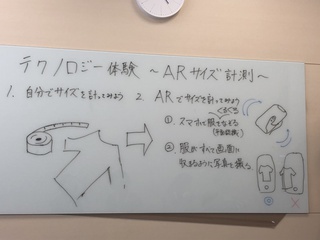 テクノロジー体験 ～ARサイズ計測～
1. 自分でサイズを計ってみよう
2. ARでサイズを計ってみよう
ぐるぐる
①. スマホで服をなぞる
②. 服がすべて画面に
収まるように写真を撮る
○
×